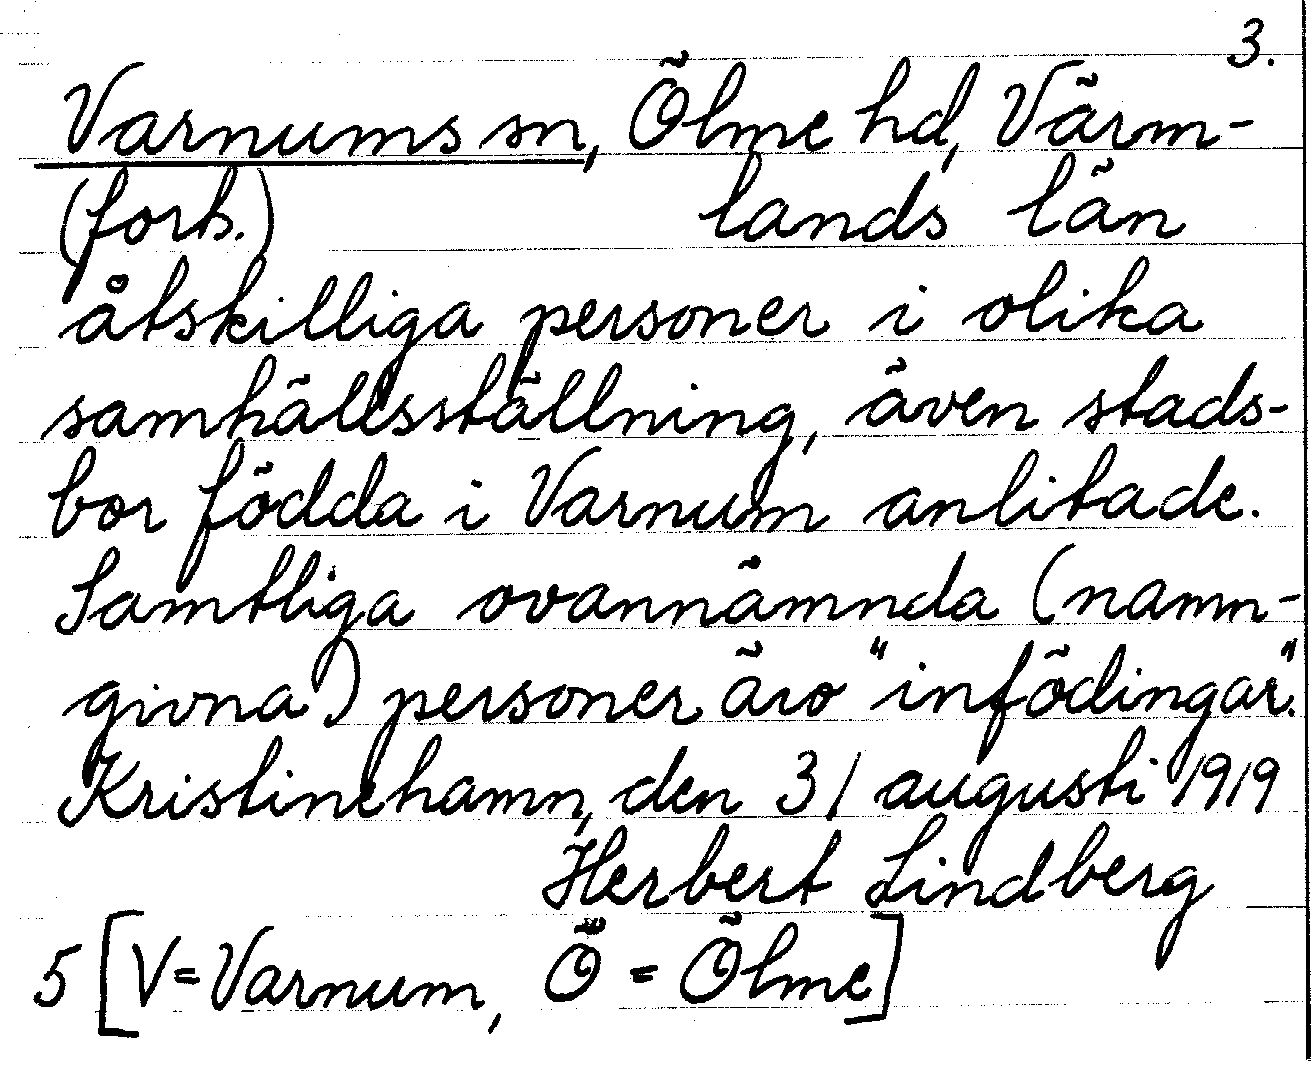 3.
Varnums sn, Ölme hd, Värm-
(forts.) lands län
åtskilliga personer i olika
samhällsställning, även stads-
bor födda i Varnum anlitade.
Samtliga ovannämnda (namn-
givna) personer äro "infödingar".
Kristinehamn, den 31 augusti 1919
Herbert Lindberg
5 [V=Varnum, Ö = Ölme]